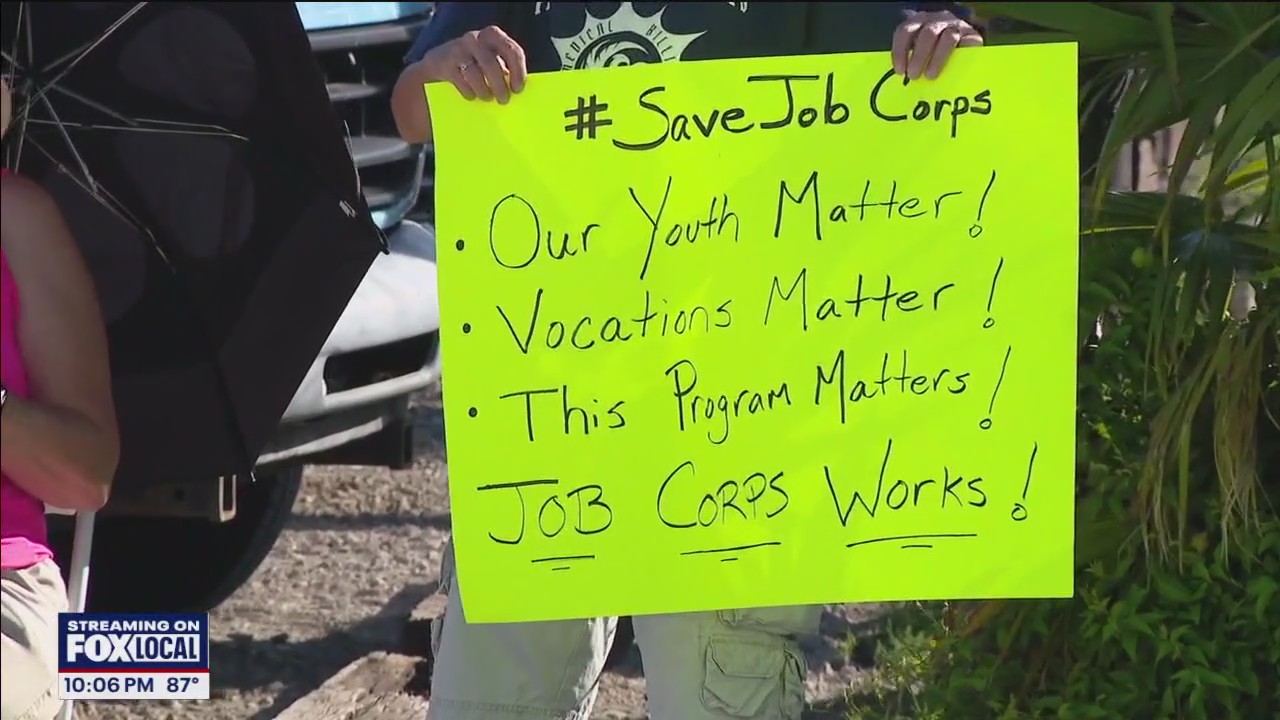 MEDICAL BILLI
#SaveJob Corps
• Our Youth Matter!
• Vocations Matter!
• This Program Matters!
JOB CORPS WORKS!
STREAMING ON
FOX LOCAL
10:06 PM 87°